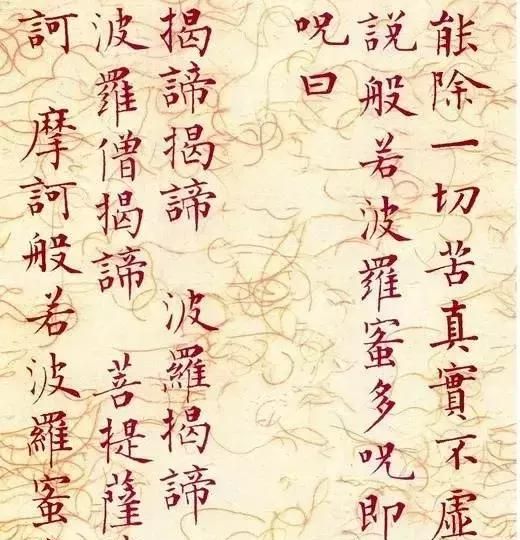 能除一切苦真實不虛
說般若波羅蜜多呪即
呪曰
揭諦揭諦 波羅揭諦
波羅僧揭諦 菩提薩
訶 摩訶般若波羅蜜